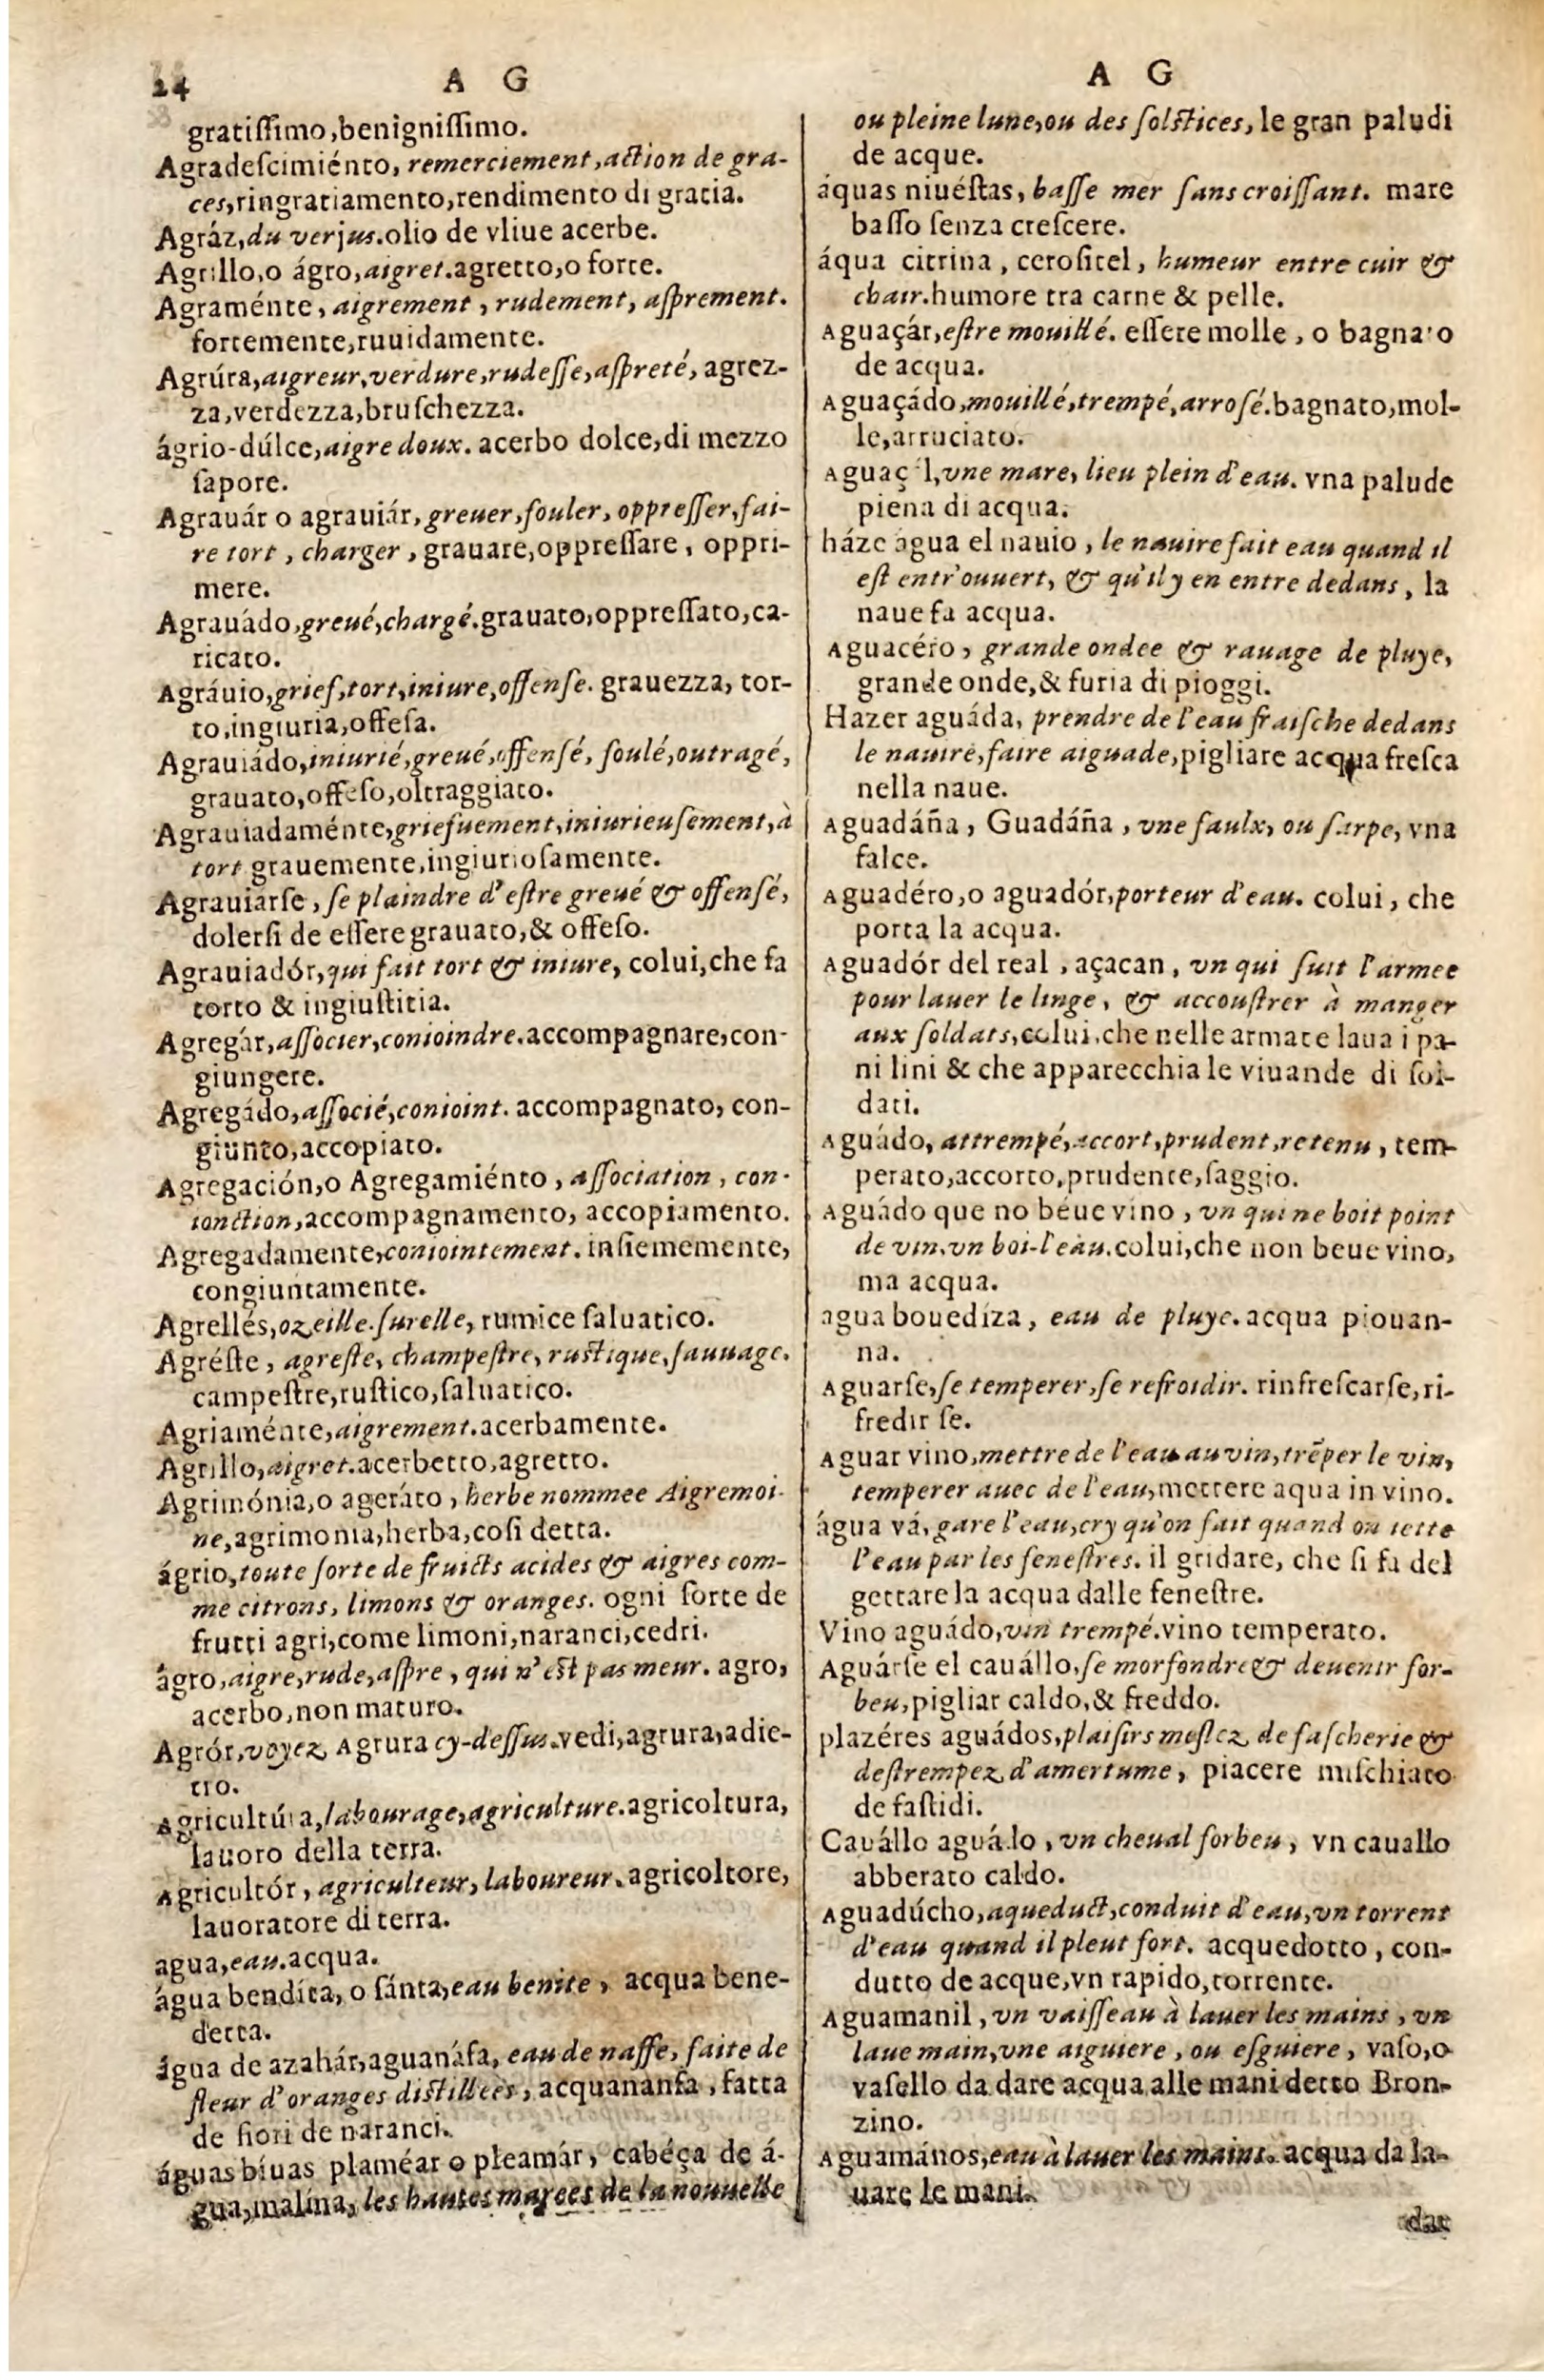 24 A G
gratiſſimo,benigniſſimo.
Agradeſcimiénto, remerciement,action de gra-
ces,ringratiamento,rendimento di gratia.
Agráz,du verjus.olio de vliue acerbe.
Agrillo,o ágro,aigret.agretto,o forte.
Agraménte, aigrement, rudement, aſprement.
fortemente,ruuidamente.
Agrúra,aigreur,verdure,rudeſſe,aſpreté, agrez-
za,verdezza,bruſchezza.
ágrio-dúlce,aigre doux. acerbo dolce,di mezzo
ſapore.
Agrauár o agrauiár,greuer,fouler, oppreſſer,fai-
re tort, charger, grauare,oppreſſare, oppri-
mere.
Agrauádo,greué,chargé.grauato,oppreſſato,ca-
ricato.
Agráuio,grief,tort,iniure,offenſe. grauezza, tor-
to,ingiuria,offeſa.
Agrauiádo,iniurié,greué,offenſé, foulé,outragé,
grauato,offeſo,oltraggiato.
Agrauiadaménte,griefuement,iniurieuſement,à
tort grauemente,ingiurioſamente.
Agrauiarſe, ſe plaindre d'eſtre greué & offenſé,
dolerſi de eſſere grauato,& offeſo.
Agrauiadór,qui fait tort & iniure, colui,che fa
torto & ingiuſtitia.
Agregár,aſſocier,conioindre.accompagnare,con-
giungere.
Agregádo,aſſocié,conioint. accompagnato, con-
giunto,accopiato.
Agregación,o Agregamiénto, aſſociation, con-
ionction,accompagnamento, accopiamento.
Agregadamente,coniointement. inſiememente,
congiuntamente.
Agrellés,ozeille.ſurelle, rumice ſaluatico.
Agréſte, agreſte, champeſtre, ruſtique,ſauuage.
campeſtre,ruſtico,ſaluatico.
Agriaménte,aigrement.acerbamente.
Agrillo,aigret.acerbetto,agretto.
Agrimónia,o ageráto, herbe nommee Aigremoi-
ne,agrimonia,herba,coſi detta.
ágrio,toute ſorte de fruicts acides & aigres com-
me citrons, limons & oranges. ogni ſorte de
frutti agri,come limoni,naranci,cedri.
ágro,aigre,rude,aſpre, qui n'eſt pas meur. agro,
acerbo,non maturo.
Agrór,voyez Agrura cy-deſſus.vedi,agrura,adie-
tro.
Agricultúra,labourage,agriculture.agricoltura,
lauoro della terra.
Agricultór, agriculteur, laboureur. agricoltore,
lauoratore di terra.
agua,eau.acqua.
água bendíta, o ſánta,eau benite, acqua bene-
detta.
água de azahár,aguanáfa, eau de naffe, faite de
fleur d'oranges diſtillees, acquananfa, fatta
de fiori de naranci.
águas bíuas plaméar o pleamár, cabéça de á-
gua,malína, les hautes marees de la nouuelle
A G
ou pleine lune,ou des ſolſtices, le gran paludi
de acque.
áquas niuéſtas, baſſe mer ſans croiſſant. mare
baſſo ſenza creſcere.
áqua citrina, ceroſitel, humeur entre cuir &
chair.humore tra carne & pelle.
Aguaçár,eſtre mouillé. eſſere molle, o bagnato
de acqua.
Aguaçádo,mouillé,trempé,arroſé.bagnato,mol-
le,arruciato.
Aguaç l,vne mare, lieu plein d'eau. vna palude
piena di acqua.
háze água el nauio, le nauire fait eau quand il
eſt entr'ouuert, & qu'il y en entre dedans, la
naue fa acqua.
Aguacéro, grande ondee & rauage de pluye,
grande onde,& furia di pioggi.
Hazer aguáda, prendre de l'eau fraiſche dedans
le nauire,faire aiguade,pigliare acqua freſca
nella naue.
Aguadáña, Guadáña, vne faulx, ou ſarpe, vna
falce.
Aguadéro,o aguadór,porteur d'eau. colui, che
porta la acqua.
Aguadór del real, açacan, vn qui ſuit l'armee
pour lauer le linge, & accouſtrer à manger
aux ſoldats,colui,che nelle armate laua i pa-
ni lini & che apparecchia le viuande di ſol-
dati.
Aguádo, attrempé,accort,prudent,retenu, tem-
perato,accorto,prudente,ſaggio.
Aguádo que no béue vino, vn qui ne boit point
de vin,vn boi-l'eau.colui,che non beue vino,
ma acqua.
agua bouedíza, eau de pluye. acqua piouan-
na.
Aguarſe,ſe temperer,ſe refroidir. rinfreſcarſe,ri-
fredir ſe.
Aguar vino,mettre de l'eau au vin,trẽper le vin,
temperer auec de l'eau,mettere aqua in vino.
água vá, gare l'eau,cry qu'on fait quand on iette
l'eau par les feneſtres. il gridare, che ſi fa del
gettare la acqua dalle feneſtre.
Vino aguádo,vin trempé.vino temperato.
Aguárſe el cauállo,ſe morfondre & deuenir for-
beu,pigliar caldo,& freddo.
plazéres aguádos,plaiſirs meſlez de faſcherie &
deſtrempez d'amertume, piacere miſchiato
de faſtidi.
Cauállo aguádo, vn cheual forbeu, vn cauallo
abberato caldo.
Aguadúcho,aqueduct,conduit d'eau,vn torrent
d'eau quand il pleut fort. acquedotto, con-
dutto de acque,vn rapido,torrente.
Aguamanil, vn vaiſſeau à lauer les mains, vn
laue main,vne aiguiere, ou eſguiere, vaſo,o
vaſello da dare acqua alle mani detto Bron-
zino.
Aguamános,eau à lauer les mains. acqua da la-
uare le mani.
dar